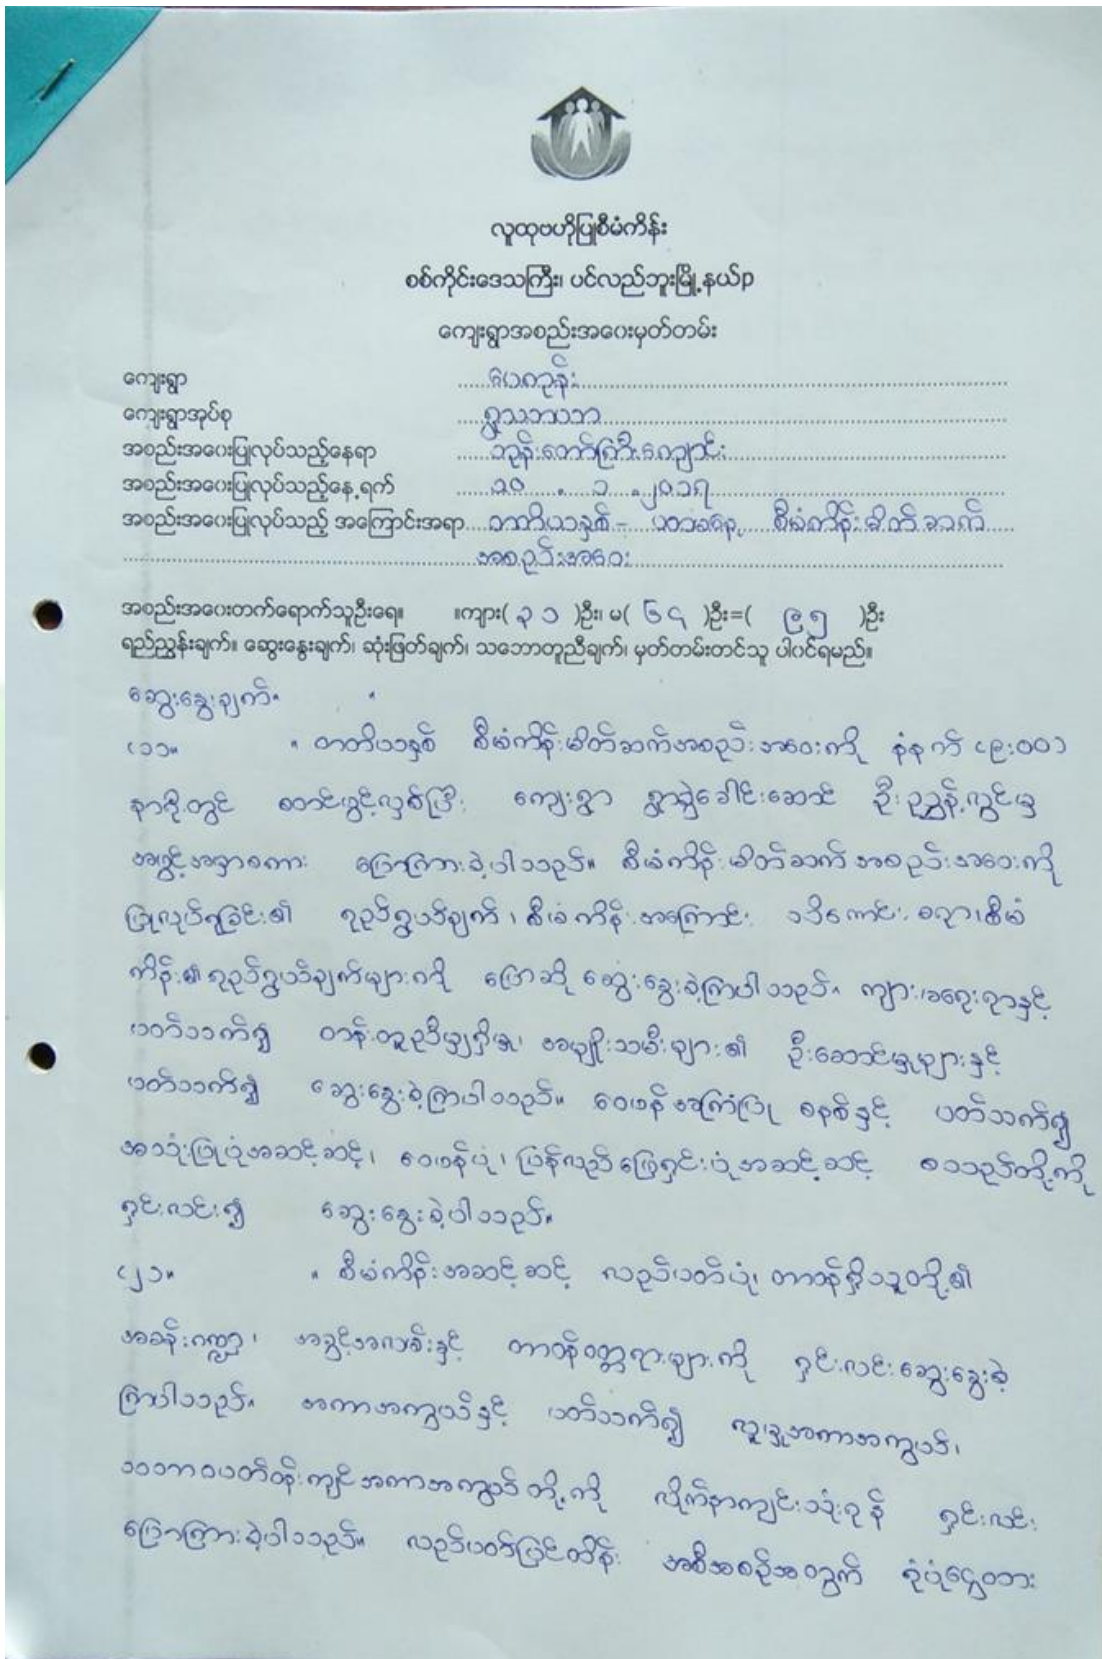 လူထုဗဟိုပြုစီမံကိန်း
စစ်ကိုင်းဒေသကြီး၊ ပင်လည်ဘူးမြို့နယ်p
ကျေးရွာအစည်းအဝေးမှတ်တမ်း
ကျေးရွာ ပေကုန်း
ကျေးရွာအုပ်စု
အစည်းအဝေးပြုလုပ်သည့်နေရာ ဘုန်းတော်ကြီးကျောင်း
အစည်းအဝေးပြုလုပ်သည့်နေ့ရက် ၁၀ . ၁ . ၂၀၁၇
အစည်းအဝေးပြုလုပ်သည့် အကြောင်းအရာ တတိယနှစ် – ပထမနေ့ စီမံကိန်းမိတ်ဆက်
အစည်းအဝေး
အစည်းအဝေးတက်ရောက်သူဦးရေ။ ။ကျား( ၃၁ )ဦး၊ မ( ၆၄ )ဦး=( ၉၅ )ဦး
ရည်ညွှန်းချက်။ ဆွေးနွေးချက်၊ ဆုံးဖြတ်ချက်၊ သဘောတူညီချက်၊ မှတ်တမ်းတင်သူ ပါဝင်ရမည်။
ဆွေးနွေးချက်။ ။
(၁)။ ။ တတိယနှစ် စီမံကိန်းမိတ်ဆက်အစည်းအဝေးကို နံနက် (၉:၀၀)
နာရီတွင် စတင်ဖွင့်လှစ်ပြီး ကျေးရွာ ရွာခွဲခေါင်းဆောင် ဦးဥာဏ်လွင်မှ
အဖွင့်အမှာစကား ပြောကြားခဲ့ပါသည်။ စီမံကိန်းမိတ်ဆက်အစည်းအဝေးကို
ပြုလုပ်ရခြင်း၏ ရည်ရွယ်ချက်၊ စီမံကိန်းအကြောင်း သိကောင်းစရာ၊ စီမံ
ကိန်း၏ရည်ရွယ်ချက်များကို ပြောဆို ဆွေးနွေးခဲ့ကြပါသည်။ ကျား/မရေးရာနှင့်
ပတ်သက်၍ တန်းတူညီမျှရှိမှု၊ အမျိုးသမီးများ၏ ဦးဆောင်မှုများနှင့်
ပတ်သက်၍ ဆွေးနွေးခဲ့ကြပါသည်။ ဝေဖန်အကြံပြု စနစ်နှင့် ပတ်သက်၍
အသုံးပြုပုံအဆင့်ဆင့်၊ ဝေဖန်ပုံ၊ ပြန်လည်ဖြေရှင်းပုံအဆင့်ဆင့် စသည်တို့ကို
ရှင်းလင်း၍ ဆွေးနွေးခဲ့ပါသည်။
(၂)။ ။ စီမံကိန်းအဆင့်ဆင့် လည်ပတ်ပုံ၊ တာဝန်ရှိသူတို့၏
အခန်းကဏ္ဍ၊ အခွင့်အလမ်းနှင့် တာဝန်ဝတ္တရားများကို ရှင်းလင်းဆွေးနွေးခဲ့
ကြပါသည်။ အကာအကွယ်နှင့် ပတ်သက်၍ လူမှုအကာအကွယ်၊
သဘာဝပတ်ဝန်းကျင်အကာအကွယ်တို့ကို လိုက်နာကျင့်သုံးရန် ရှင်းလင်း
ပြောကြားခဲ့ပါသည်။ လည်ပတ်ပြင်ထိန်း အစီအစဉ်အတွက် ရံပုံငွေထား